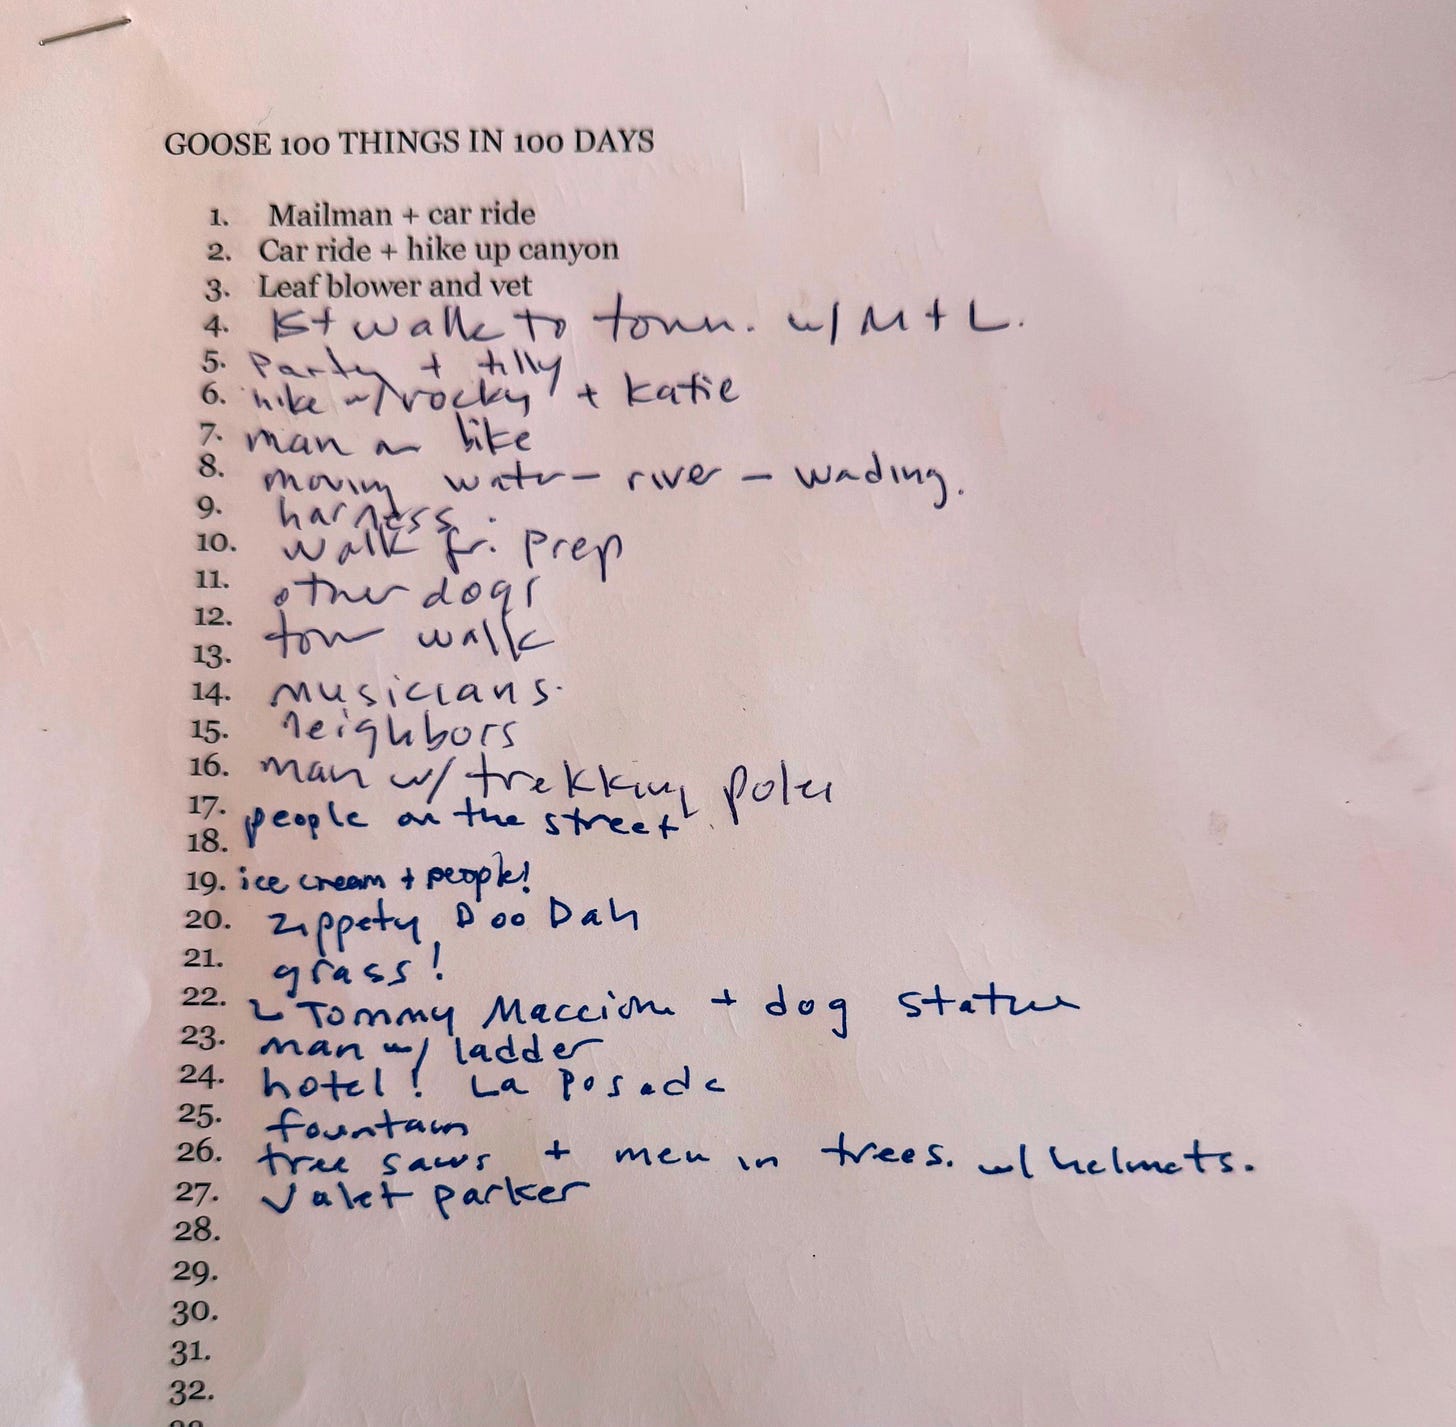 GOOSE 100 THINGS IN 100 DAYS
1. Mailman + car ride
2. Car ride + hike up canyon
3. Leaf blower and vet
4. 1st walk to town. w/ M + L.
5. Party + tilly
6. hike w/ rocky + Katie
7. man on bike
8. moving water – river – wading.
9. harness.
10. walk fr. prep
11. other dogs
12. town walk
13.
14. musicians.
15. neighbors
16. man w/ trekking poles
17. people on the street.
18.
19. ice cream + people!
20. Zippety Doo Dah
21. grass!
22. Tommy + dog statue
23. man w/ ladder
24. hotel! La Posada
25. fountain
26. tree saws + men in trees. w/ helmets.
27. Valet parker
28.
29.
30.
31.
32.